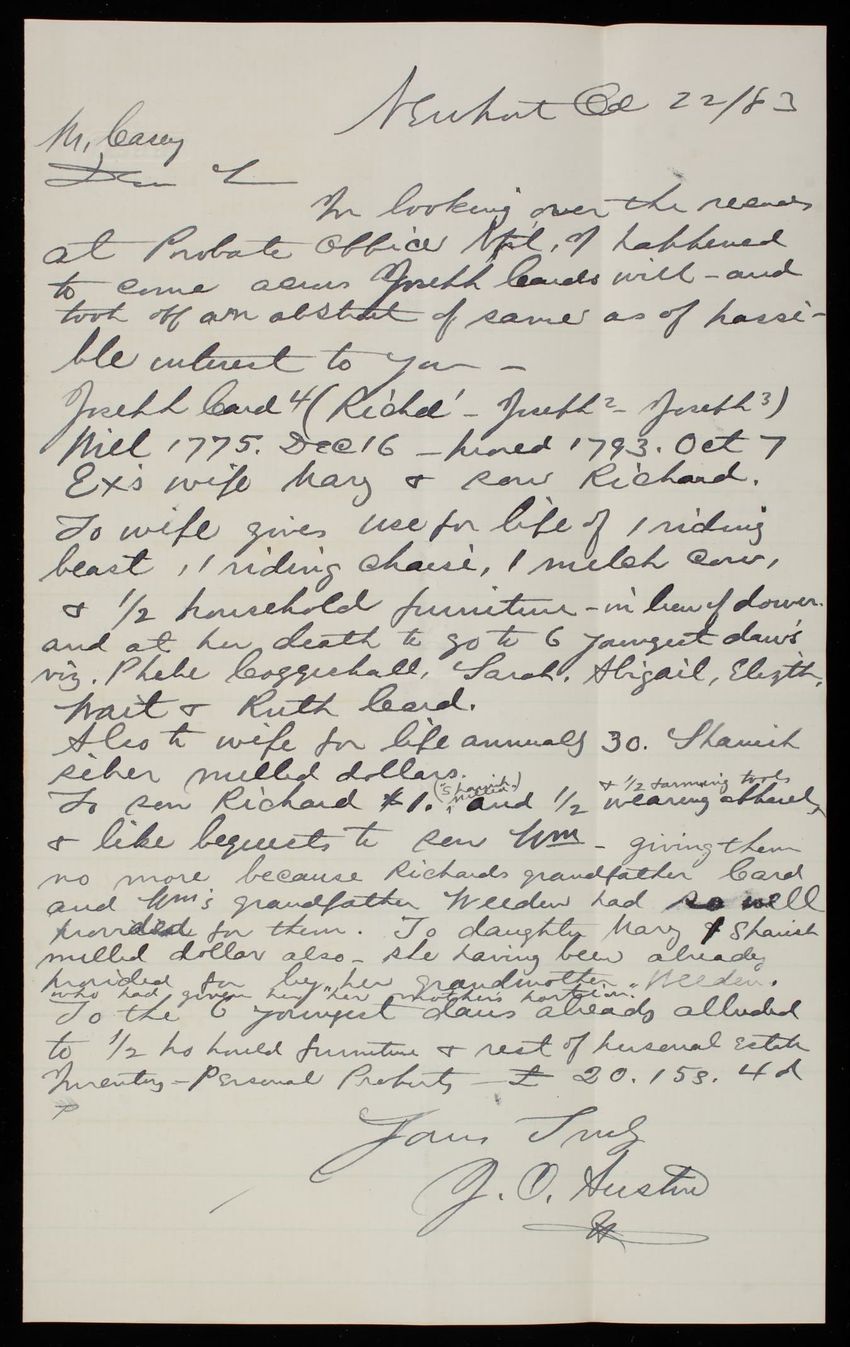 Newport Oct 22/83
Mr. Casey
Dear Sir
In looking over the records
at Probate Office Npt, I happened
to come across Joseph Cards will - and
took off an abstract of same as of possi-
ble interest to you -
Joseph Card 4 (Richd 1 - Joseph 2 - Joseph 3)
Will 1775. Dec 16 - proved 1793. Oct 7
Exs wife Mary & son Richard.
To wife gives use for life of 1 riding
beast, 1 riding chaise, 1 milch cow,
& 1/2 household furniture - in lieu of dower.
and at her death to go to 6 youngest daus
viz. Phebe Coggeshall, Sarah, Abigail, Elizth,
Wait & Ruth Card.
Also to wife for life annually 30. Spanish
silver milled dollars.
To son Richard $1. (Spanish milled) and 1/2 wearing apparel, & 1/2 farming tools
& like bequests to son Wm - giving them
no more because Richards grandfather Card
and Wm's grandfather Weeden had so well
provided for them. To daughter Mary 1 Spanish
milled dollar also - she having been already
provided for by "her grandmother Weeden.
who had given her "her mothers portion."
To the 6 youngest daus already alluded
to 1/2 hohould furniture & rest of personal Estate
Inventory - Personal Property - £ 20. 15s. 4d
Yours Truly
J. O. Austin